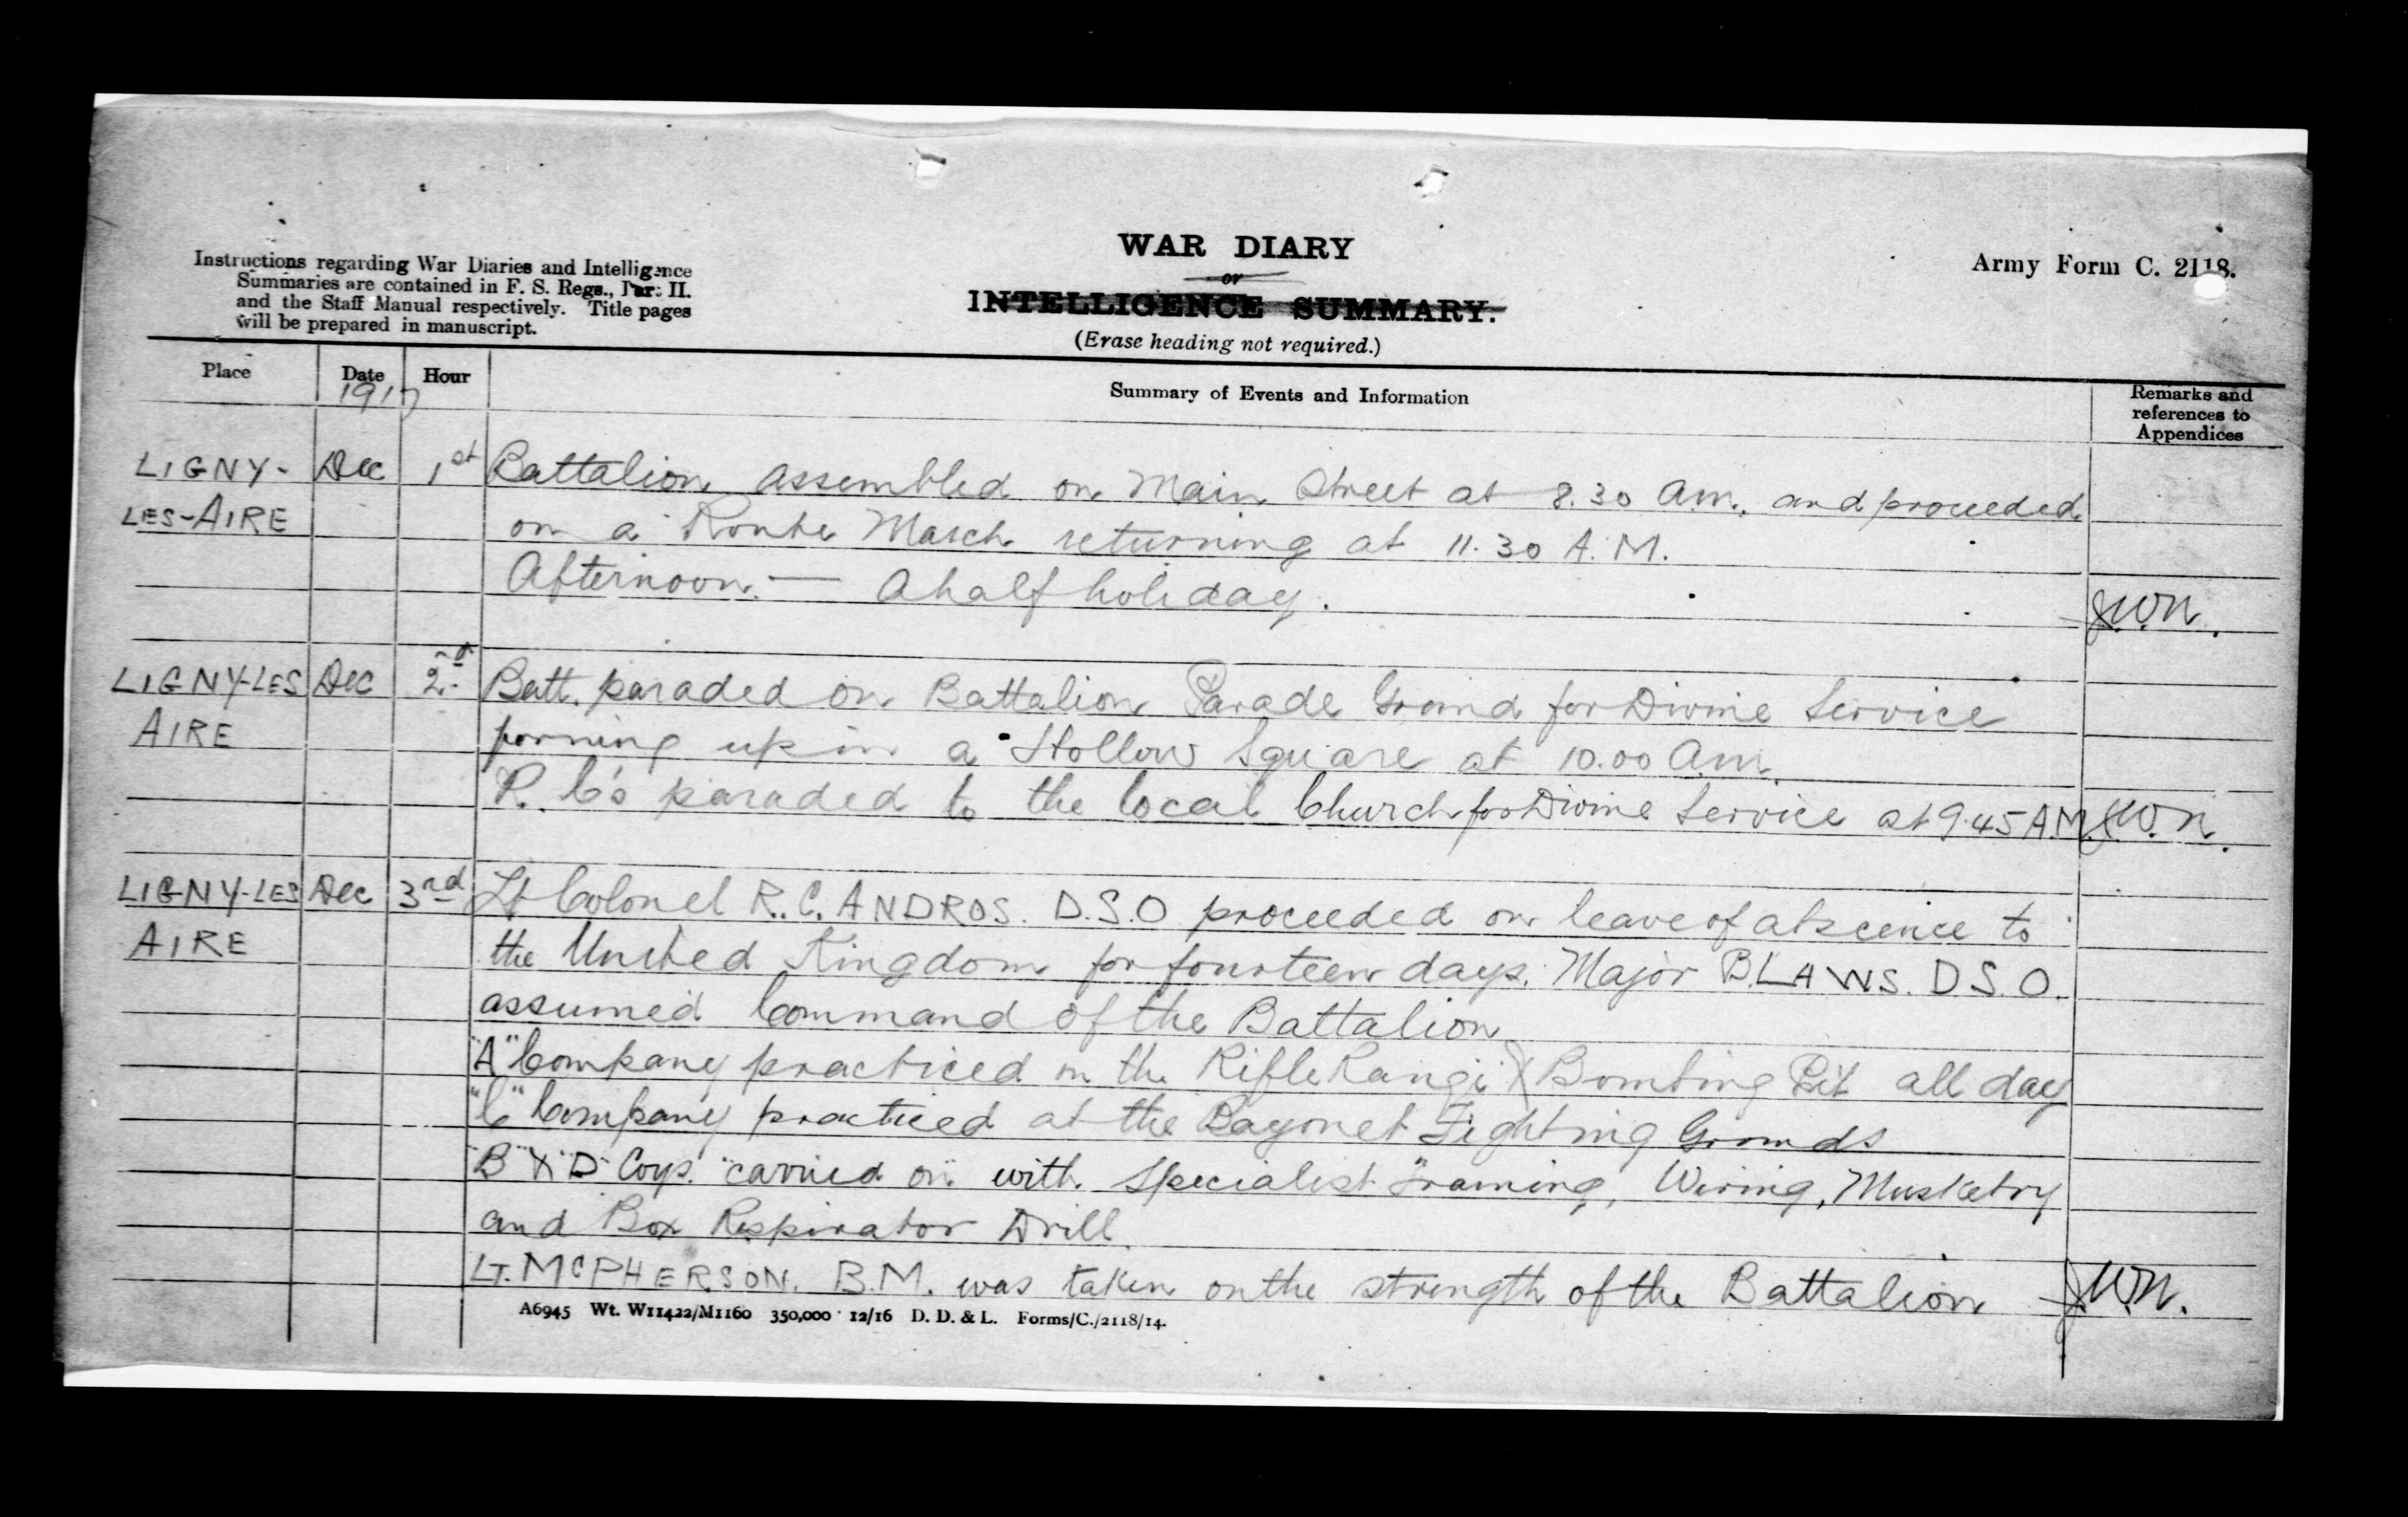 Instructions regarding War Diaries and Intelligence
Summaries are contained in F. S. Regs., Part II.
and the Staff Manual respectively. Title pages
will be prepared in manuscript.
WAR DIARY
or
INTELLIGENCE SUMMARY.
(Erase heading not required.)
Army Form C. 2118.
Place Date Hour Summary of Events and Information Remarks and references to Appendices
1917
LIGNY- Dec 1st Battalion assembled on Main Street at 8.30 A.m., and proceeded
LES-AIRE on a Route March returning at 11.30 A.M.
Afternoon. — A half holiday. J.W.N.
LIGNY-LES Dec 2nd Batt. paraded on Battalion Parade Ground for Divine Service
AIRE forming up in a Hollow Square at 10.00 A.m.
R. C's paraded to the local Church for Divine Service at 9.45 A.M. J.W.N.
LIGNY-LES Dec 3rd Lt Colonel R.C. ANDROS. D.S.O proceeded on leave of abscence to
AIRE the United Kingdom for fourteen days. Major B.LAWS. D.S.O.
assumed Command of the Battalion
"A" Company practiced on the Rifle Range & Bombing Pit all day
"C" Company practiced at the Bayonet Fighting Grounds
"B" & "D" Coys. "carried on" with Specialist Training, Wiring, Musketry
and Box Respirator Drill.
LT. McPHERSON. B.M. was taken on the strength of the Battalion J.W.N.
A6945 Wt. W11422/M1160 350,000 12/16 D. D. & L. Forms/C./2118/14.